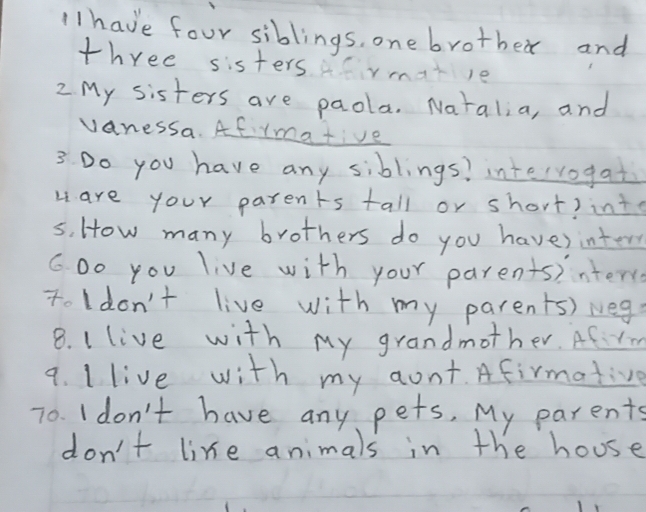 1 I have four siblings. one brother and
three sisters Afirmative
2. My sisters are paola. Natalia, and
vanessa. Afirmative
3. Do you have any siblings? interrogati
4 are your parents tall or short? inte
5. How many brothers do you have? interr
6. Do you live with your parents? interro
7. I don't live with my parents) Neg
8. I live with My grandmother. Afirm
9. I live with my aunt. Afirmative
10. I don't have any pets. My parents
don't like animals in the house